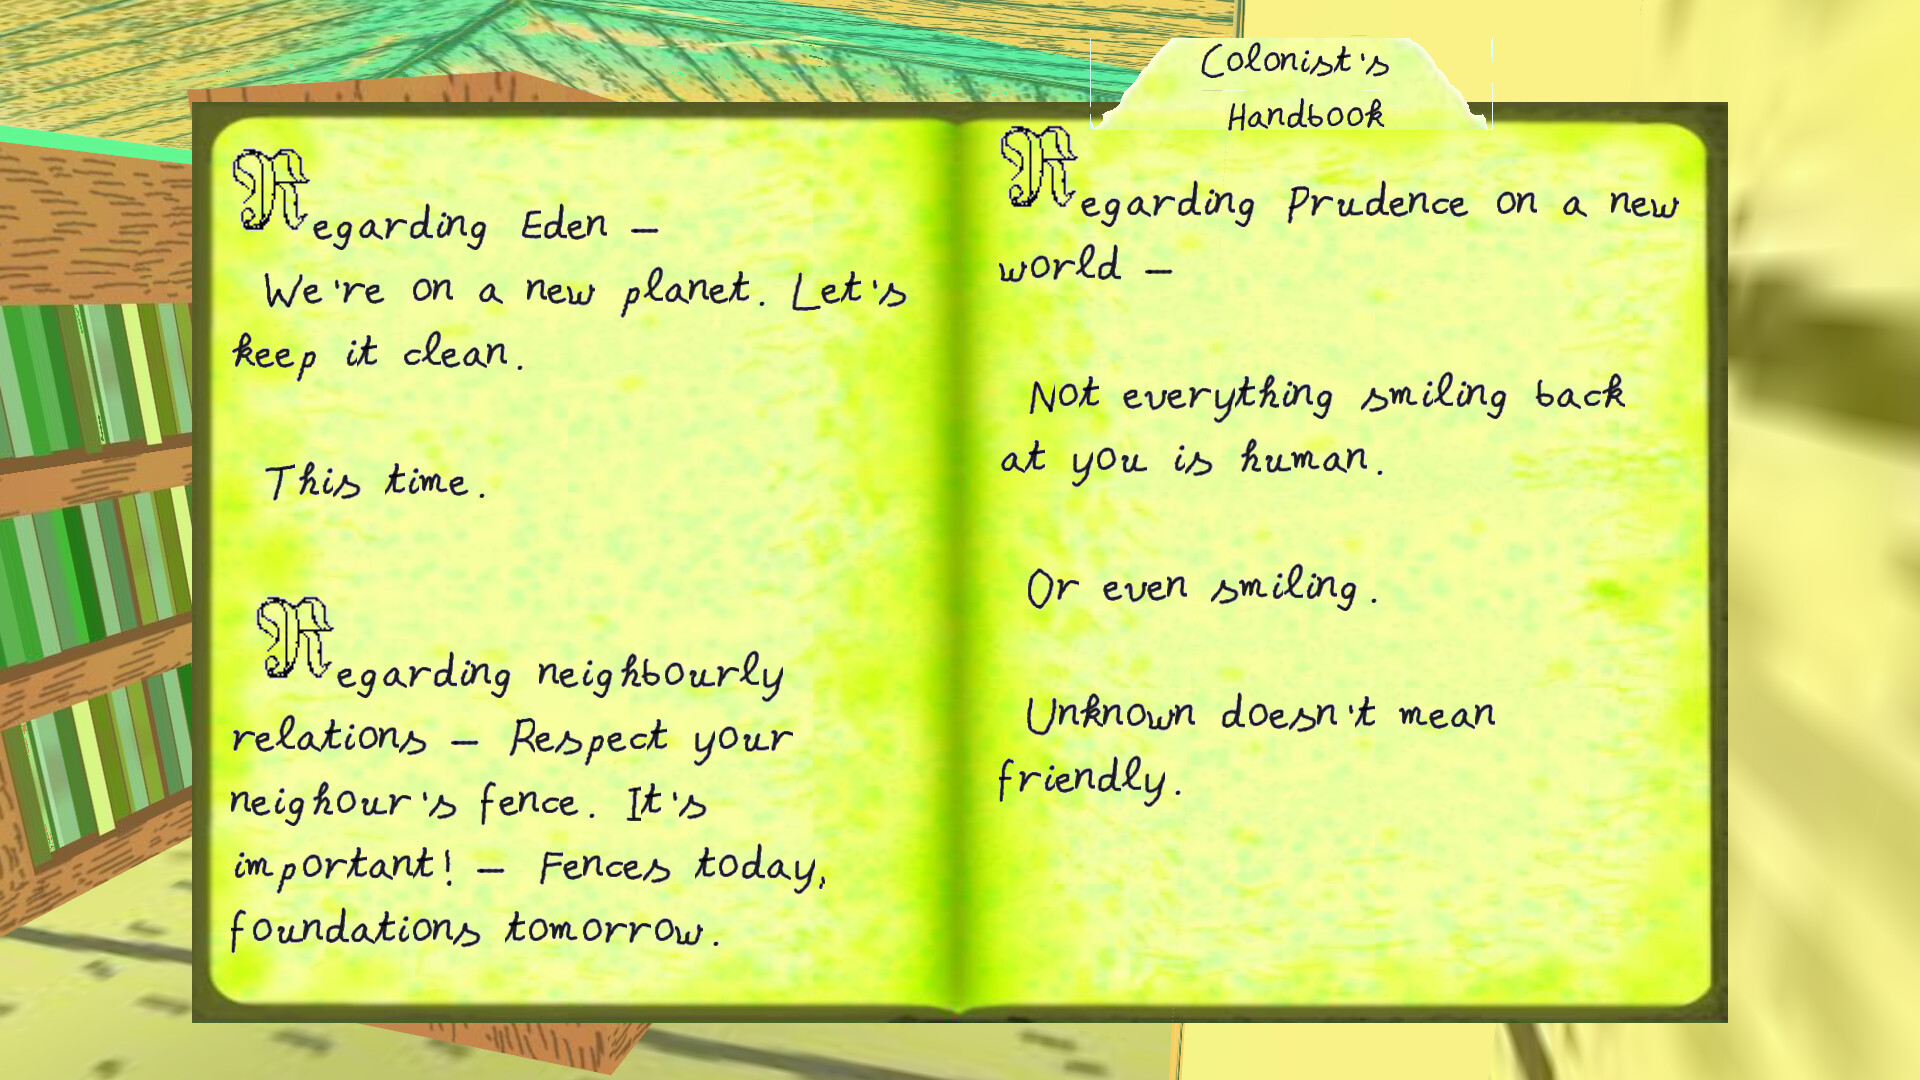 Colonist's
Handbook
Regarding Eden –
We're on a new planet. Let's
keep it clean.
This time.
Regarding neighbourly
relations – Respect your
neighour's fence. It's
important! – Fences today,
foundations tomorrow.
Regarding Prudence on a new
world –
Not everything smiling back
at you is human.
Or even smiling.
Unknown doesn't mean
friendly.